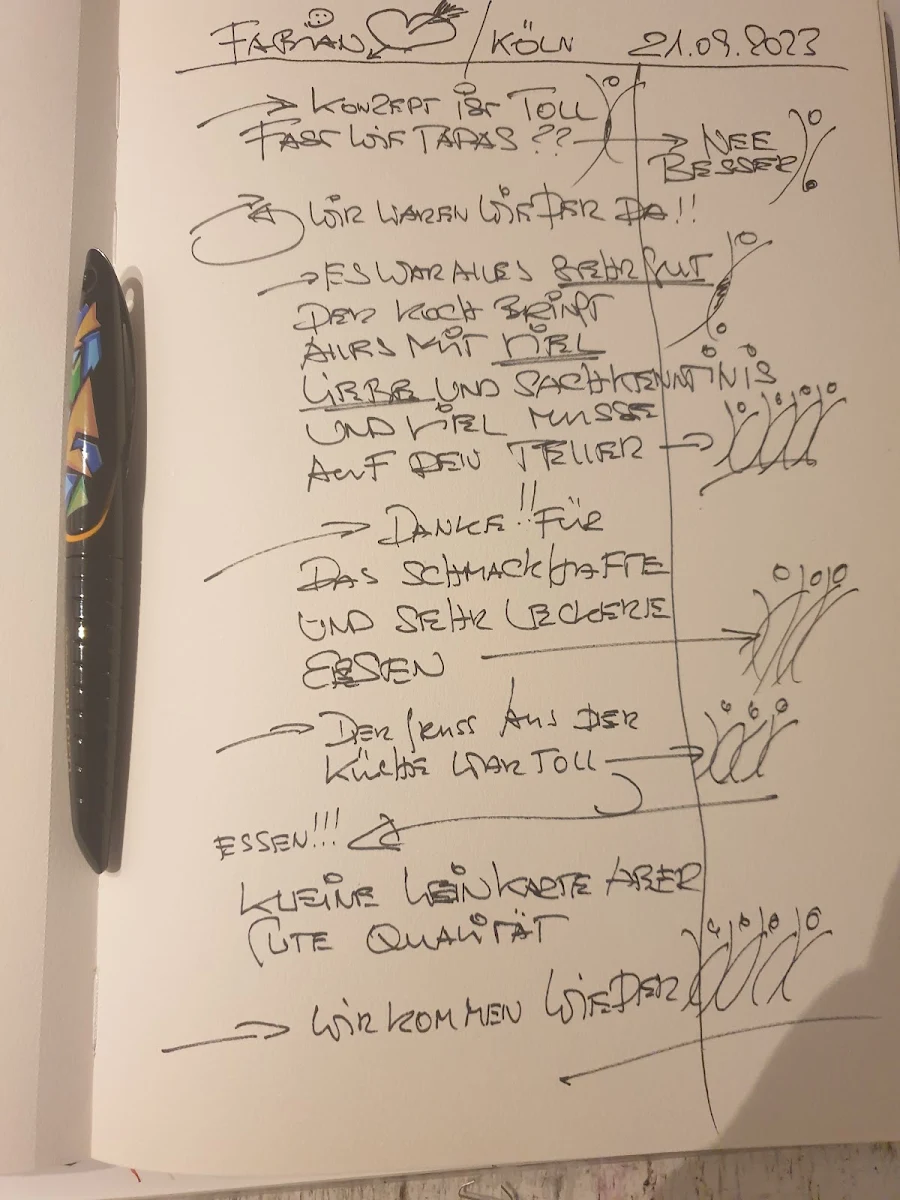 FABIAN / KÖLN 21.09.2023
KONZEPT IST TOLL
FAST WIE TAPAS ?? NEE
BESSER
WIR WAREN WIEDER DA!!
ES WAR ALLES SEHR GUT
DER KOCH BRINGT
ALLES MIT VIEL
LIEBE UND SACHKENNTNIS
UND VIEL MUSSE
AUF DEN TELLER
DANKE!! FÜR
DAS SCHMACKHAFTE
UND SEHR LECKERE
ESSEN
DER GRUSS AUS DER
KÜCHE WAR TOLL
ESSEN!!!
KLEINE WEINKARTE ABER
GUTE QUALITÄT
WIR KOMMEN WIEDER